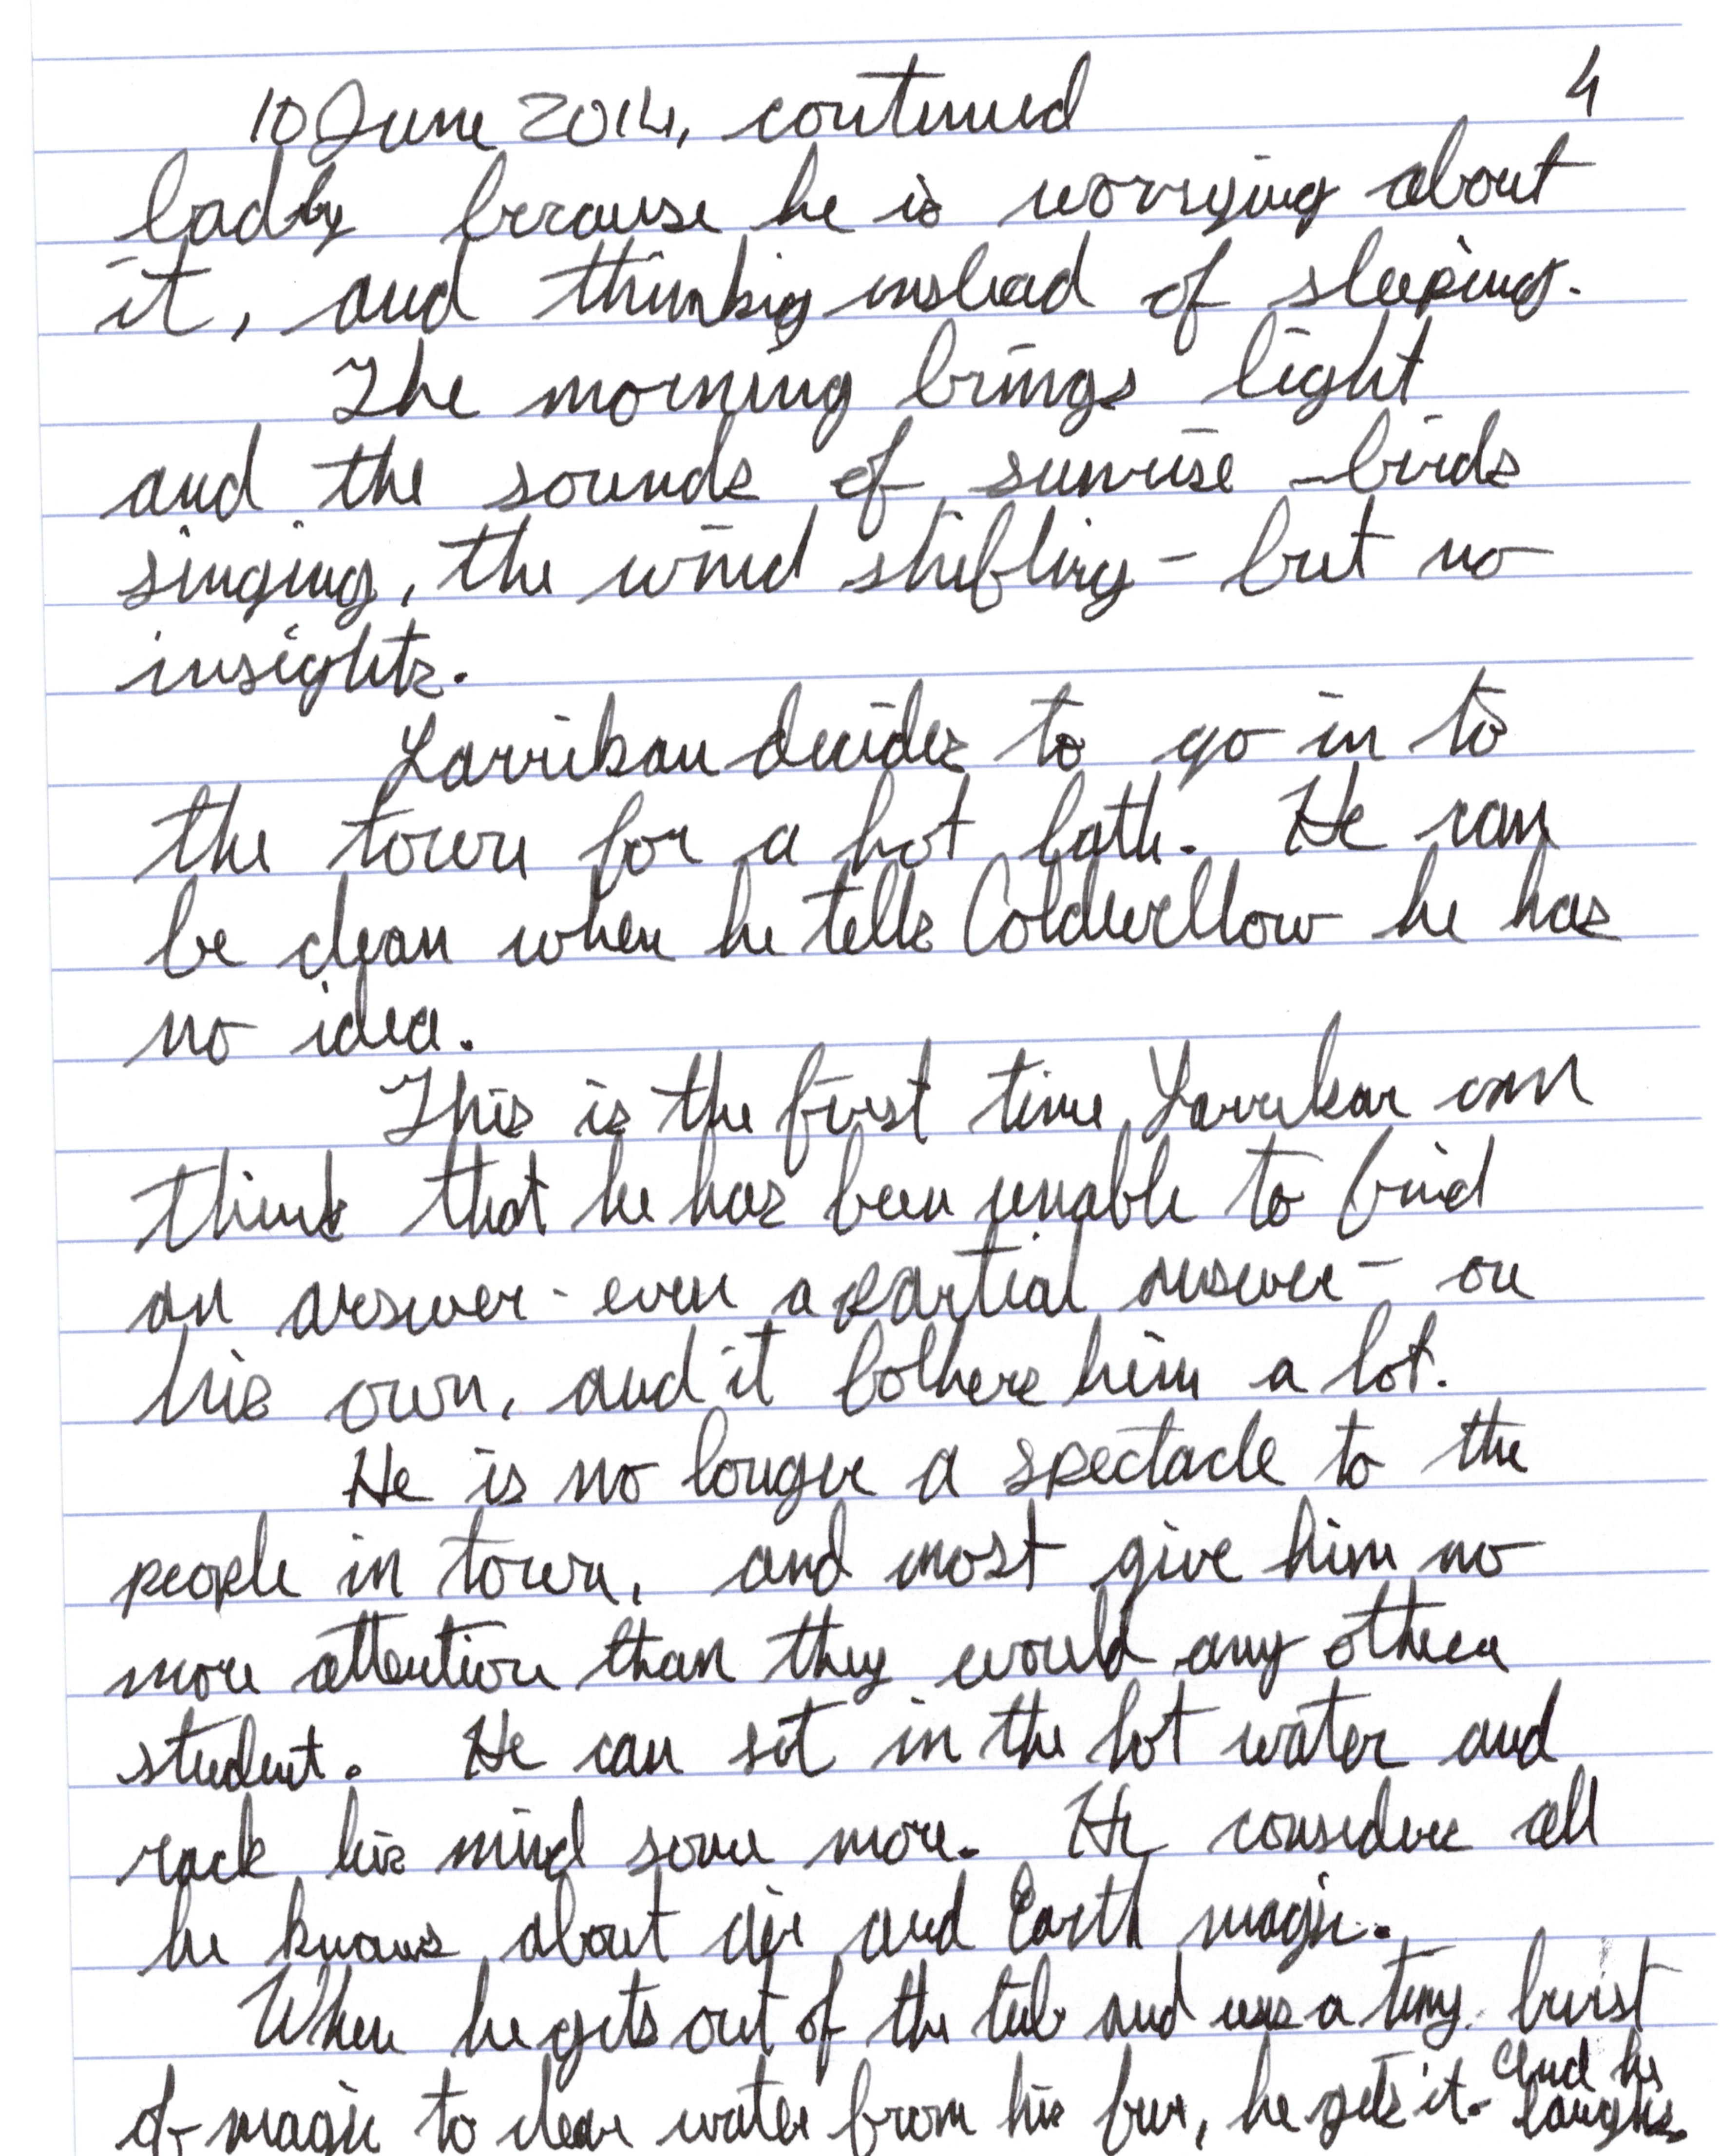 10 June 2014, continued 4
badly because he is worrying about
it, and thinking instead of sleeping.
The morning brings light
and the sounds of sunrise - birds
singing, the wind shifting - but no
insights.
Larrikan decides to go in to
the town for a hot bath. He can
be clean when he tells Coldwillow he has
no idea.
This is the first time Larrikan can
think that he has been unable to find
an answer - even a partial answer - on
his own, and it bothers him a lot.
He is no longer a spectacle to the
people in town, and most give him no
more attention than they would any other
student. He can sit in the hot water and
rack his mind some more. He considers all
he knows about air and Earth magic.
When he gets out of the tub and uses a tiny burst
of magic to clear water from his fur, he gets it. And he
laughs.